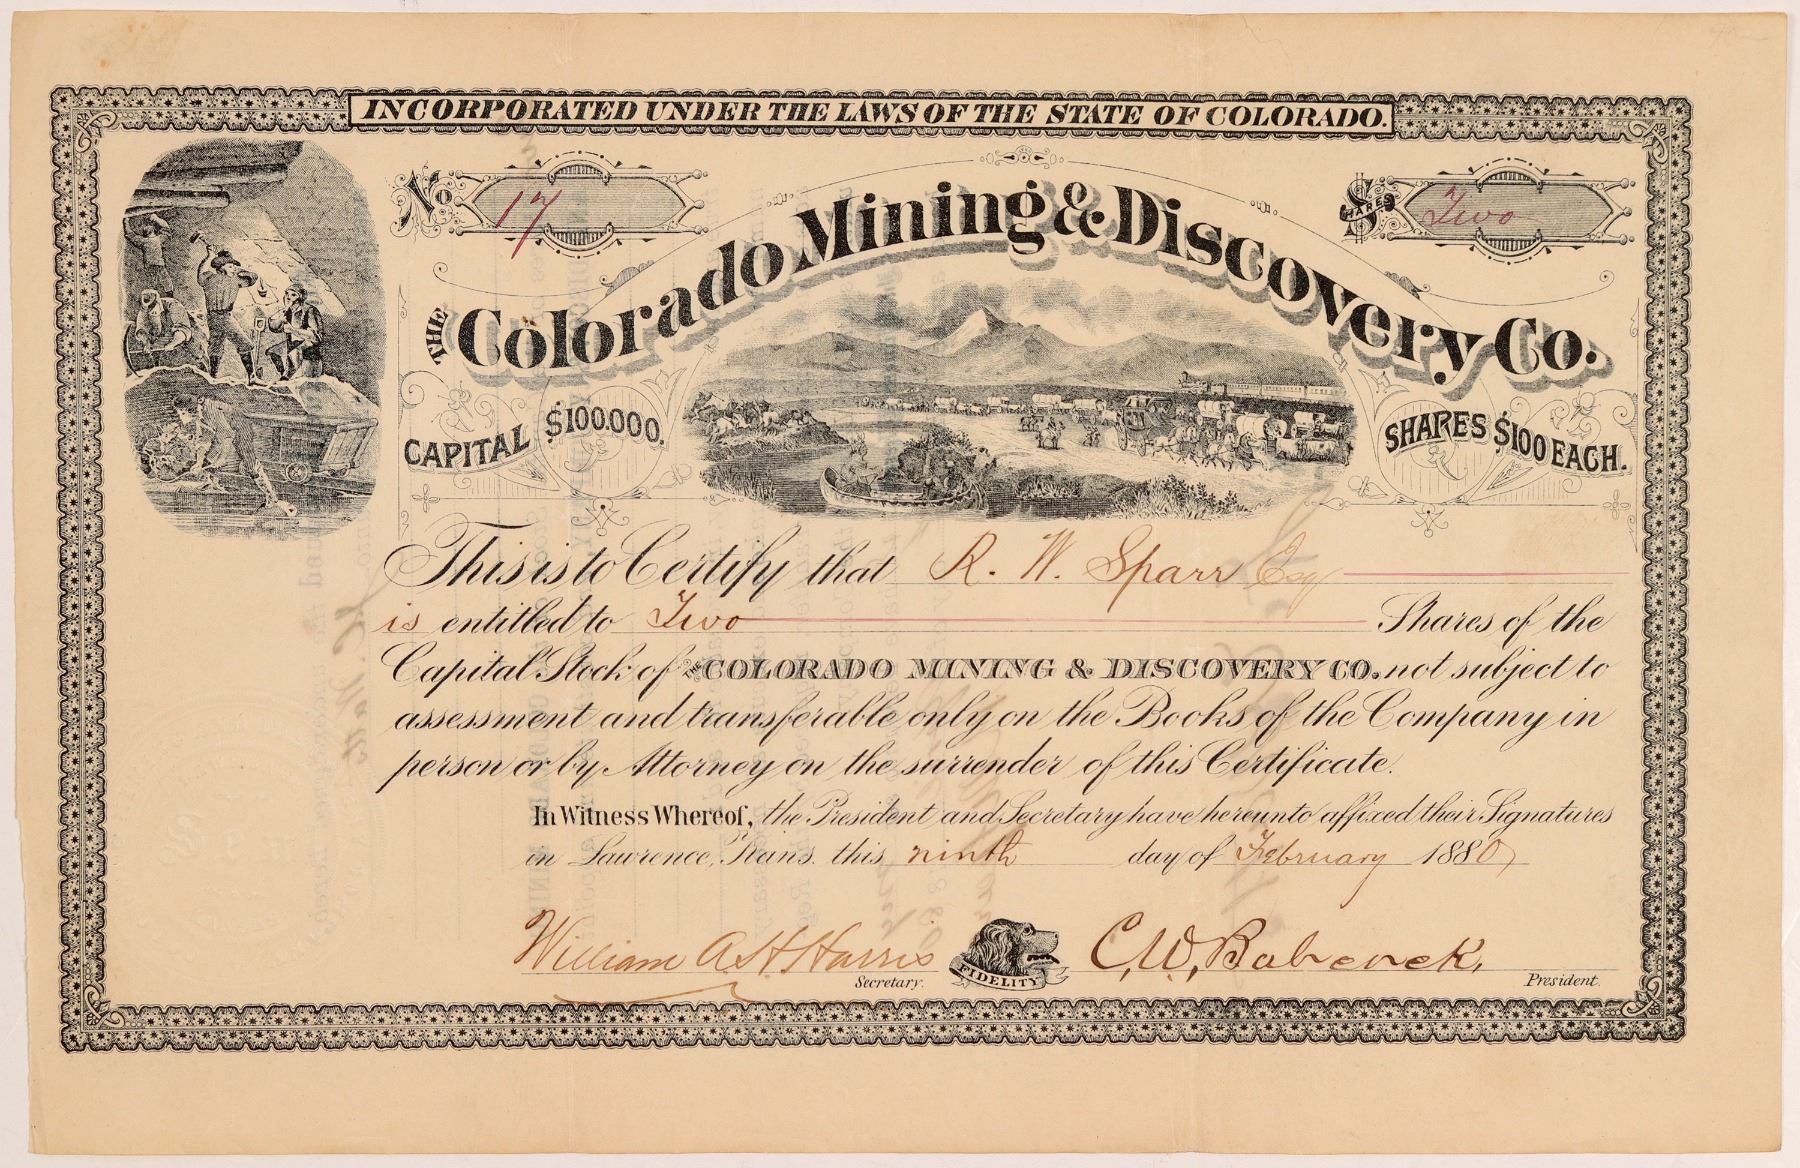 INCORPORATED UNDER THE LAWS OF THE STATE OF COLORADO.
No 17
SHARES Two
THE Colorado Mining & Discovery Co.
CAPITAL $100.000.
SHARES $100 EACH.
This is to Certify that R. W. Sparr Esq
is entitled to Two Shares of the
Capital Stock of THE COLORADO MINING & DISCOVERY CO. not subject to
assessment and transferable only on the Books of the Company in
person or by Attorney on the surrender of this Certificate.
In Witness Whereof, the President and Secretary have hereunto affixed their Signatures
in Lawrence, Kans. this ninth day of February 1880
William A. H. Harris
Secretary.
FIDELITY
C. W. Babcock.
President.